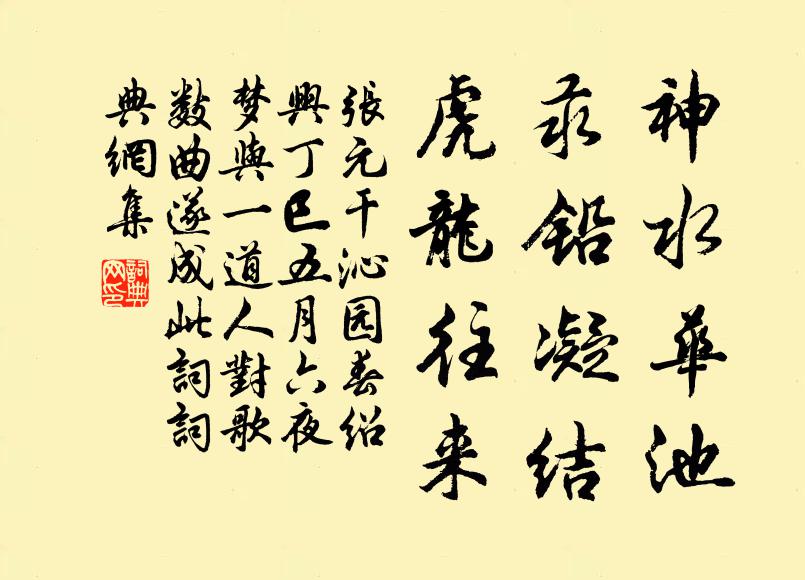 神水華池
汞鉛凝结
虎龍往来
張元干沁园春绍
興丁巳五月六夜
梦與一道人對歌
数曲遂成此詞詞
典網集
詞典
网印